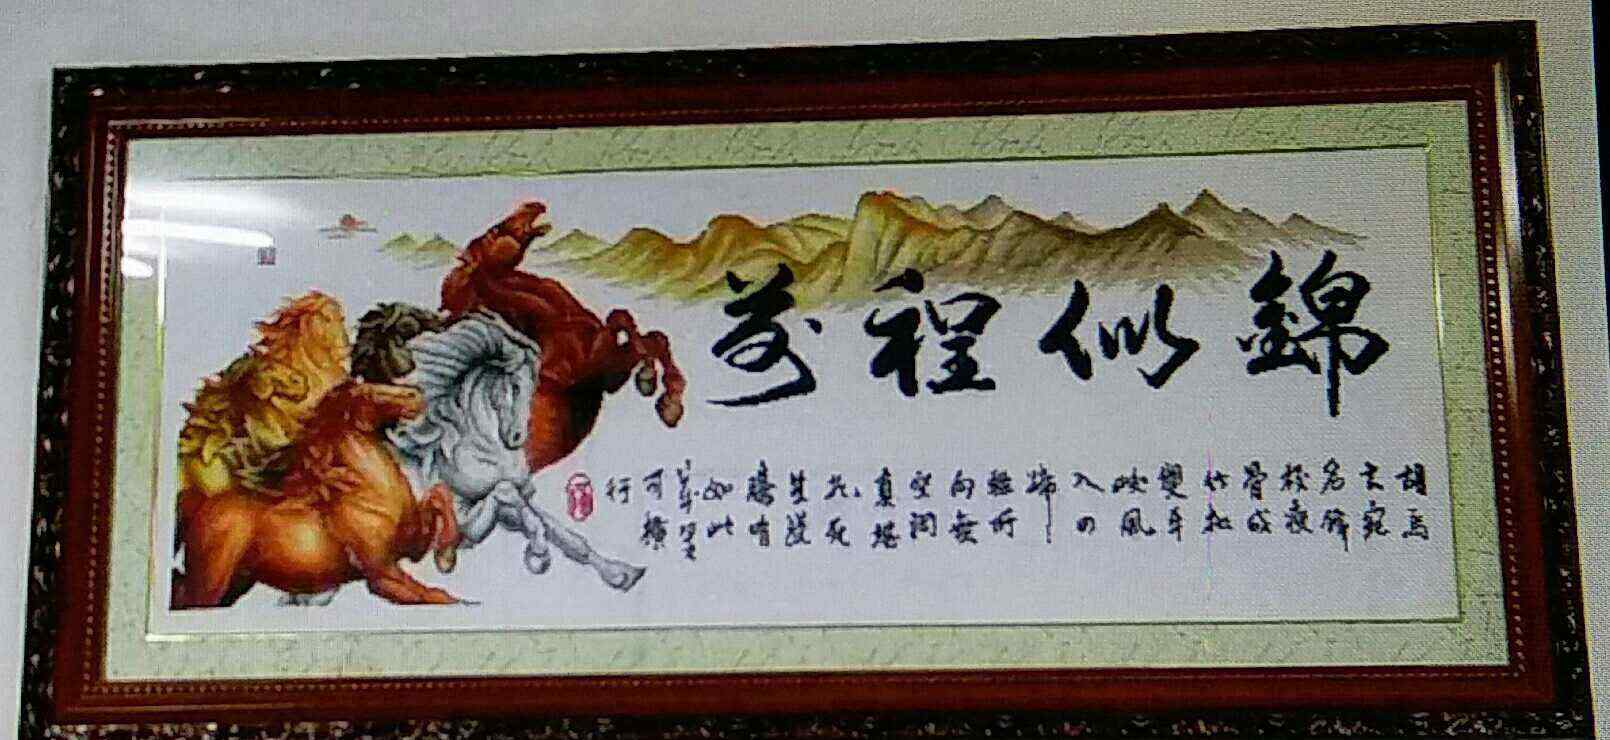 前程似錦
胡馬
大宛
名鋒
棱瘦
骨成
竹批
雙耳
峻風
入四
蹄
輕所
向無
空闊
真堪
托死
生驍
騰有
如此
萬里
可橫
行